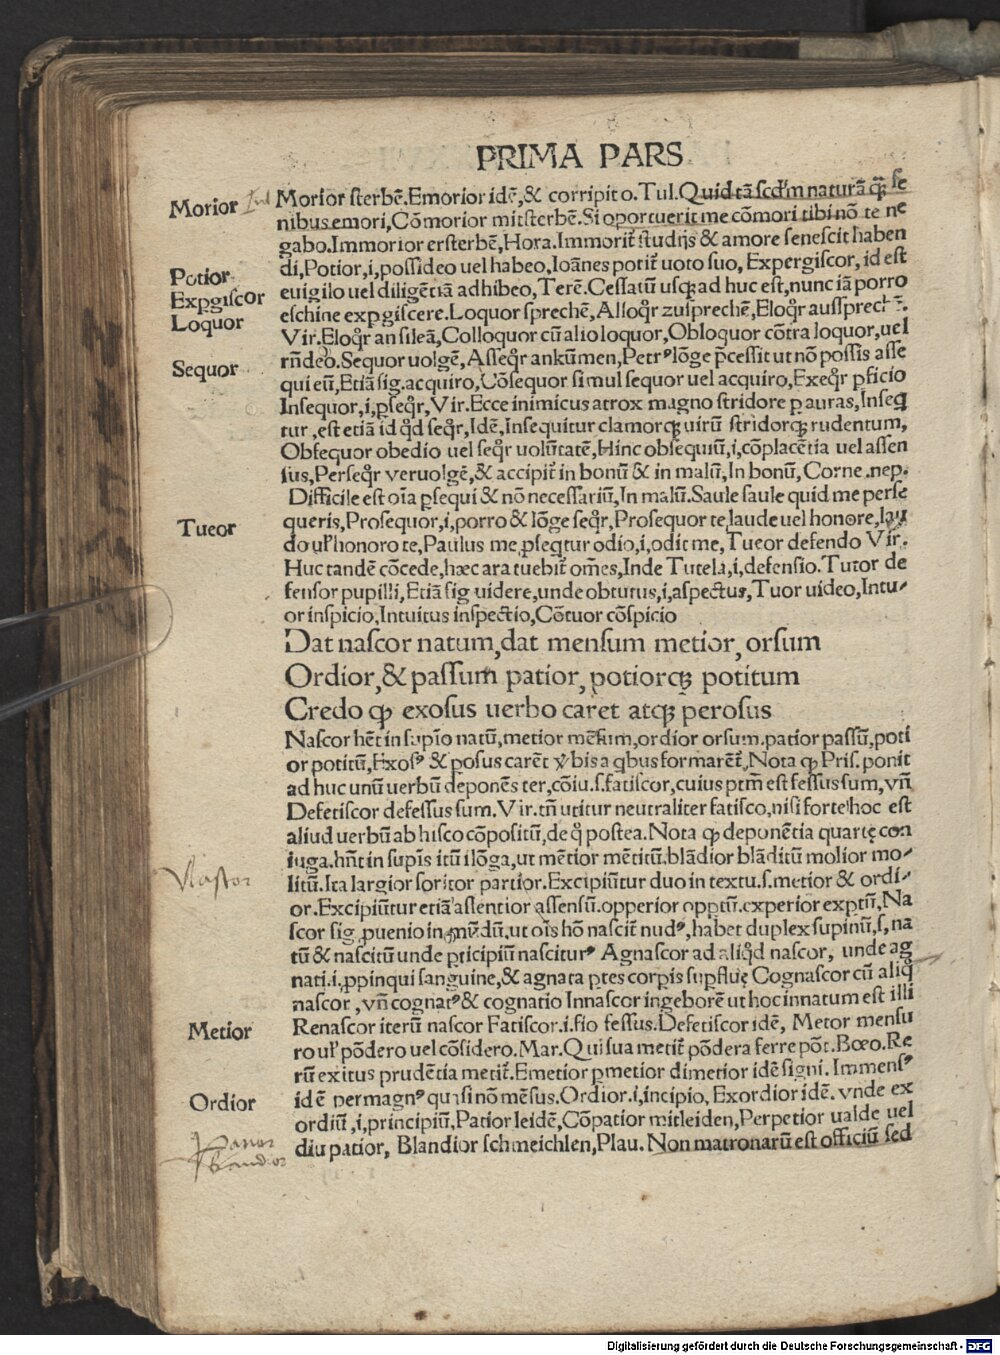 PRIMA PARS
Morior
Morior sterbē.Emorior idē,& corripit o.Tul.Quid tā scdm naturā q̄ꝫ se
nibus emori,Cōmorior mitsterbē.Si oportuerit me cōmori tibi nō te ne
gabo.Immorior ersterbē,Hora.Immorit̃ studijs & amore senescit haben
Potior
di,Potior,i,possideo uel habeo,Ioānes potit̃ uoto suo, Expergiscor, id est
Expgiscor
euigilo uel diligētiā adhibeo, Terē. Cessatū usqꝫ ad huc est,nunc iā porro
Loquor
eschine expgiscere.Loquor sprechē, Alloqr̃ zusprechē, Eloqr̃ aussprechē.
Vir.Eloqr̃ an sileā,Colloquor cū alio loquor,Obloquor cōtra loquor,uel
Sequor
rñdeo.Sequor uolgē, Asseqr̃ ankūmen,Petr⁹ lōge p̄cessit ut nō possis asse
qui eū,Etiā sig.acquiro,Cōsequor simul sequor uel acquiro,Exeqr̃ pficio
Insequor,i,pseqr̃,Vir.Ecce inimicus atrox magno stridore p auras,Inseq
tur,est etiā id qd̃ seqr̃,Idē,Insequitur clamorqꝫ uirū stridorqꝫ rudentum,
Obsequor obedio uel seqr̃ volūtatē,Hinc obsequiū,i,cōplacētia uel assen
sus,Perseqr̃ veruolgē,& accipit̃ in bonū & in malū,In bonū, Corne.nep.
Difficile est oīa psequi & nō necessariū,In malū.Saule saule quid me perse
Tueor
queris,Prosequor,i,porro & lōge seqr̃,Prosequor te,laude uel honore,lau
do ul̛ honoro te,Paulus me pseqtur odio,i,odit me,Tueor defendo Vir.
Huc tandē cōcede,hæc ara tuebit̃ om̃es,Inde Tutela,i,defensio.Tutor de
fensor pupilli,Etiā sig uidere,unde obtutus,i,aspectus,Tuor uideo,Intu⸗
or inspicio,Intuitus inspectio,Cōtuor cōspicio
Dat nascor natum,dat mensum metior,orsum
Ordior,& passum patior,potiorqꝫ potitum
Credo ꝙ exosus uerbo caret atqꝫ perosus
Nascor hēt in supīo natū,metior mēsum,ordior orsum.patior passū,poti
or potitū,Exos⁹ & posus carēt ỽbis a qbus formarēt̃,Nota ꝙ Pris. ponit
ad huc unū uerbū deponēs ter,cōiu.s.fatiscor,cuius ptm̄ est fessus sum,vñ
Defetiscor defessus sum.Vir.tñ utitur neutraliter fatisco,nisi forte hoc est
aliud uerbū ab hisco cōpositū,de q̄ postea.Nota ꝙ deponētia quartę con
iuga.hñt in supīs itū i lōga,ut mētior mētitū.blādior blāditū molior mo⸗
Nastor
litū.Ita largior sortior partior.Excipiūtur duo in textu.s.metior & ordi⸗
or.Excipiūtur etiā assentior assensū.opperior opptū.experior exptū,Na
scor sig puenio in mūdū,ut oīs hō nascit̃ nud⁹,habet duplex supinū,s,na
tū & nascitū unde pticipiū nascitur⁹ Agnascor ad aliqd̃ nascor, unde ag
nati.i.ppinqui sanguine,& agnata ptes corpis supfluę Cognascor cū aliq̄
nascor,vñ cognat⁹ & cognatio Innascor ingeborē ut hoc innatum est illi
Metior
Renascor iterū nascor Fatiscor.i.fio fessus.Defetiscor idē, Metor mensu
ro ul̛ pōdero uel cōsidero.Mar.Qui sua metit̃ pōdera ferre pōt.Boeo.Re
rū exitus prudētia metit̃.Emetior pmetior dimetior idē signi. Immens⁹
Ordior
idē permagn⁹ quasi nō mēsus.Ordior.i,incipio, Exordior idē.vnde ex
ordiū,i,principiū,Patior leidē,Cōpatior mitleiden,Perpetior ualde uel
diu patior, Blandior schmeichlen,Plau. Non matronarū est officiū sed
Digitalisierung gefördert durch die Deutsche Forschungsgemeinschaft - DFG